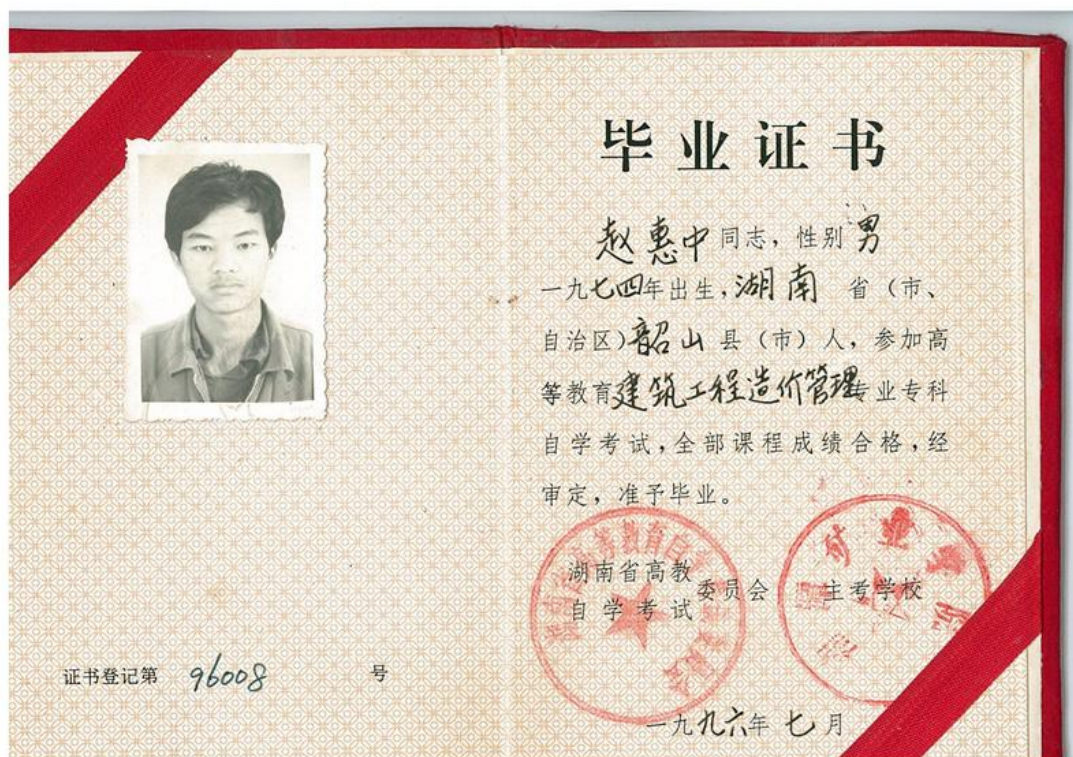 毕业证书
赵惠中同志，性别男
一九七四年出生，湖南省（市、
自治区）韶山县（市）人，参加高
等教育建筑工程造价管理专业专科
自学考试，全部课程成绩合格，经
审定，准予毕业。
湖南省高教
自学考试
委员会 主考学校
一九九六年七月
证书登记第 96008 号